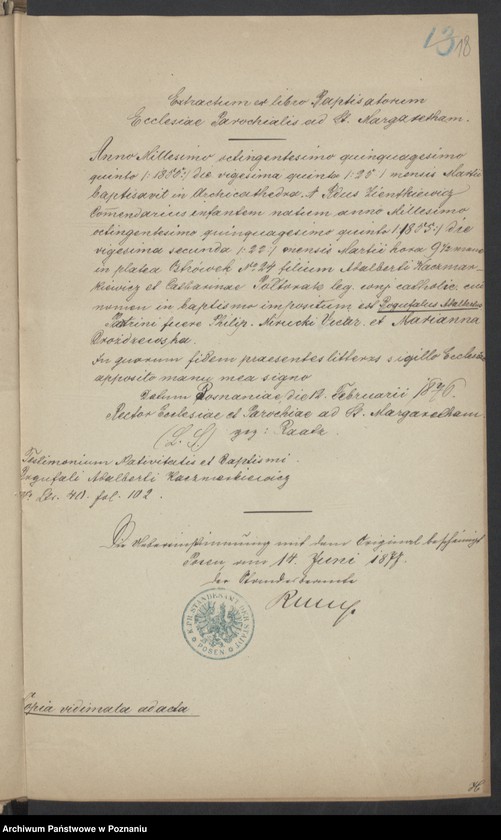 13 18
Extractum ex libro Baptisatorum
Ecclesiae Parochialis ad St. Margaretham.
Anno Millesimo octingentesimo quinquagesimo
quinto /:1855:/ die vigesima quinta /:25:/ mensis Martii
baptisavit in Archicathedra
Comendarius infantem natum anno Millesimo
octingentesimo quinquagesimo quinto /:1855:/ die
vigesima secunda /:22:/ mensis Martii hora 9½ mane
in platea Ostrówek No 24 filium Adalberti Kaczmar-
kiewicz et Catharinae leg. conj. catholic. cui
nomen in baptismo impositum est Bogufalus Adalbertus
Patrini fuere Philip. et Marianna
In quorum fidem praesentes litteras sigillo Ecclesiae
apposito manu mea signo
Datum Posnaniae die 12. Februarii 1876.
Rector Ecclesiae et Parochiae ad St. Margaretham
(L. S.) gez: Raatz.
Testimonium Nativitatis et Baptismi
Bogufali Adalberti Kaczmarkiewicz
fol. 102.
Die Uebereinstimmung mit dem Original bescheinigt
Posen am 14. Juni 1877.
Der Standesbeamte
K. PR. STANDESAMT DER STADT
POSEN
Copia vidimata ad acta
Archiwum Państwowe w Poznaniu